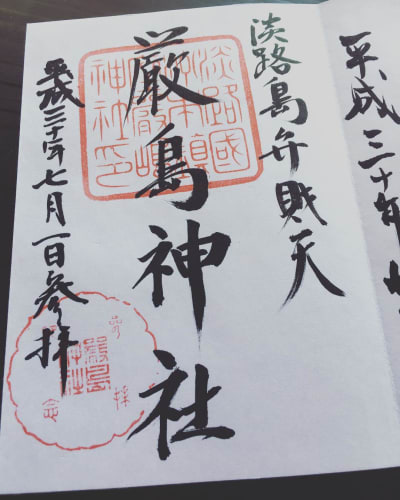 平成三十年
淡路島弁財天
厳島神社
平成三十年七月一日参拝
淡路國
神社印
厳島
神社